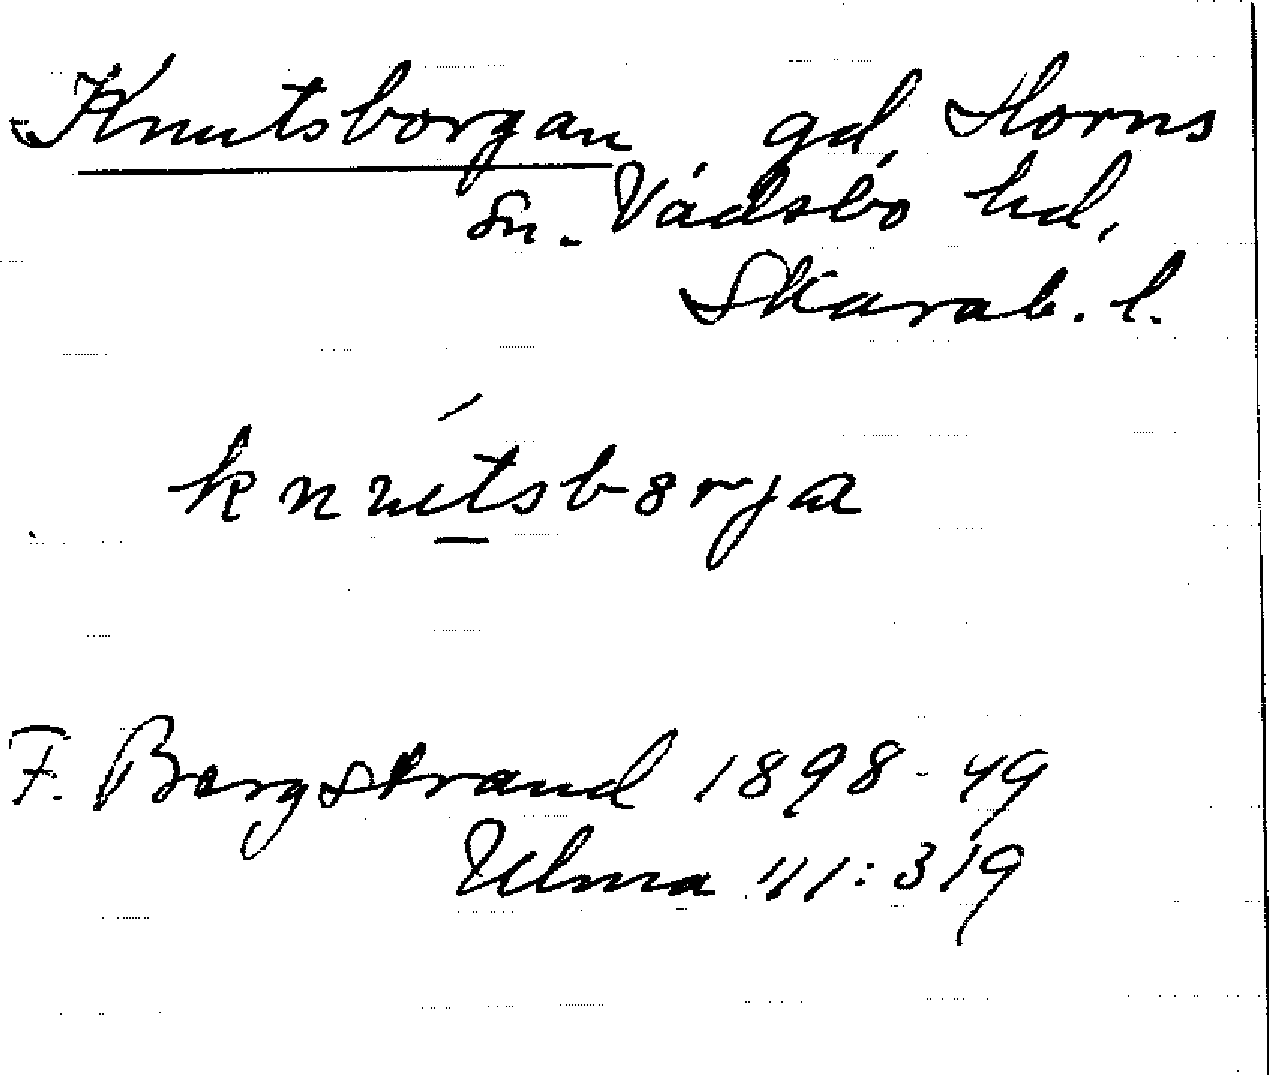 Knutsborgan gd, Horns
sn. Vadsbo hd,
Skarab. l.
knutsb8rja
F. Bergstrand 1898-99
Ulma 11:319